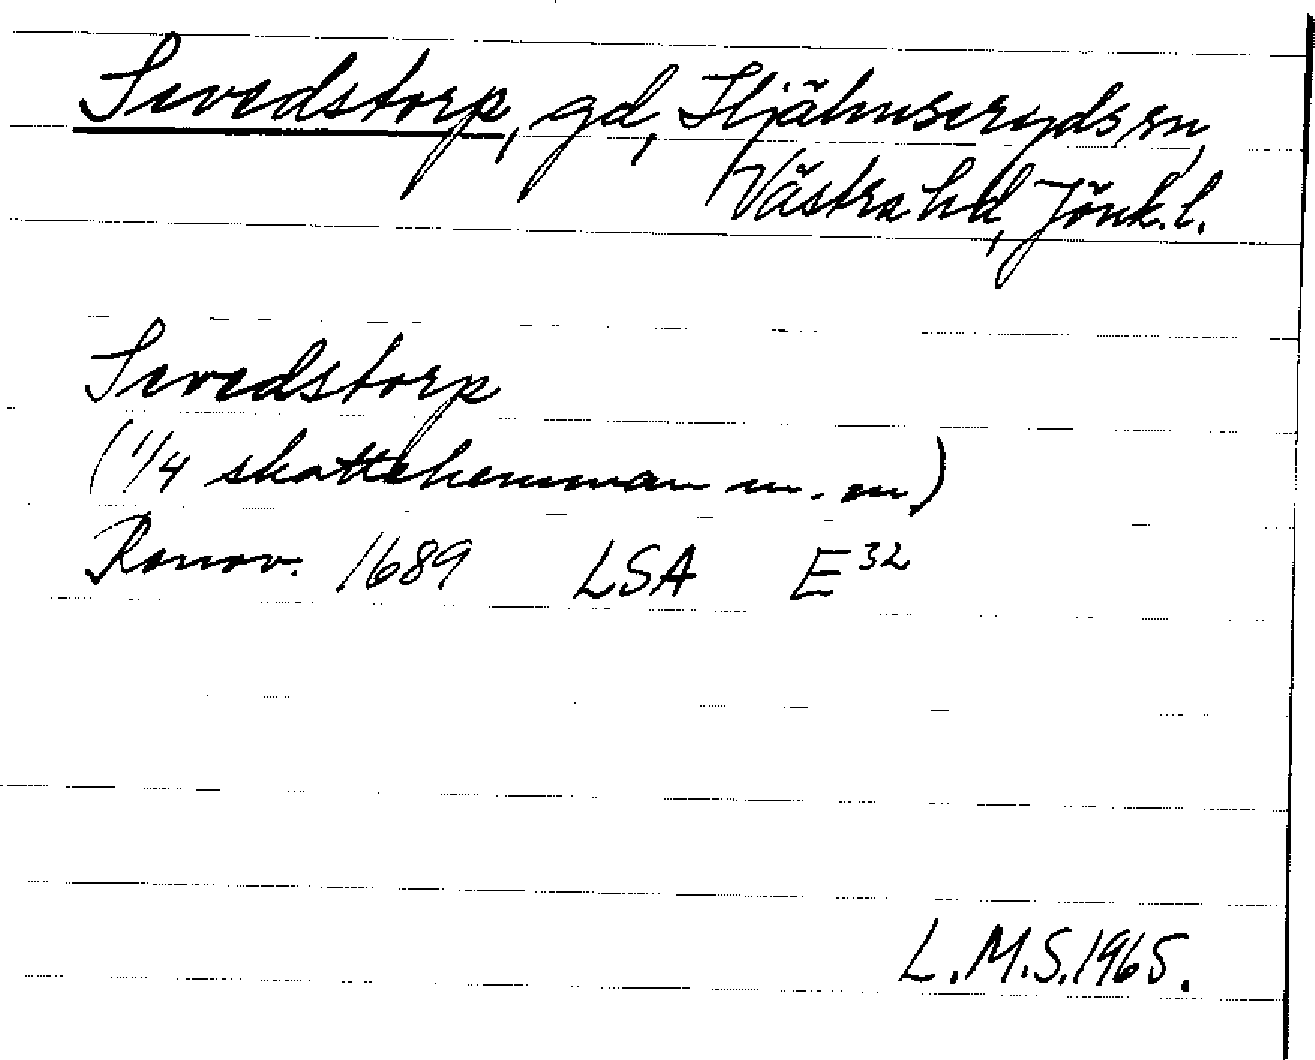 Sevedstorp, gd, Hjälmseryds sn,
Västra hd, Jönk. l.
Sevedstorp
(1/4 skattehemman m. m.)
Renov. 1689 LSA E32
L.M.S. 1965.